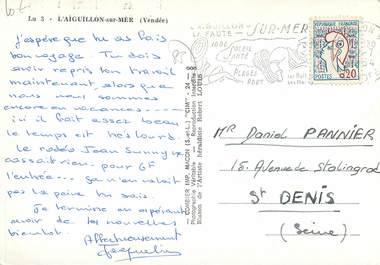 Lu 3 - L'AIGUILLON-sur-MER (Vendée)
J'espère que tu as fais
bon voyage. Tu dois
avoir repris ton travail
maintenant, alors que
nous nous sommes
encore en vacances
ici il fait assez beau
le temps est très lourd.
Le rodéo Jean Sunny
assait rien. pour 6F
l'entrée... ça n'en valait
pas la peine tu sais.
Je termine en espérant
avoir de tes nouvelles
bientôt.
Affectueusement
Jacqueline
COMBIER IMP. MACON (S.-L.) "CIM"
Photographie Véritable - Reproduction Interdite
Blason de l'Artiste Héraldiste Robert LOUIS
L'AIGUILLON-SUR-MER
LA FAUTE
SOLEIL
SANTÉ
PLAGES
PORT
REPUBLIQUE FRANCAISE
POSTES
0,20
Mr Daniel PANNIER
15. Avenue de Stalingrad
St DENIS
(Seine)